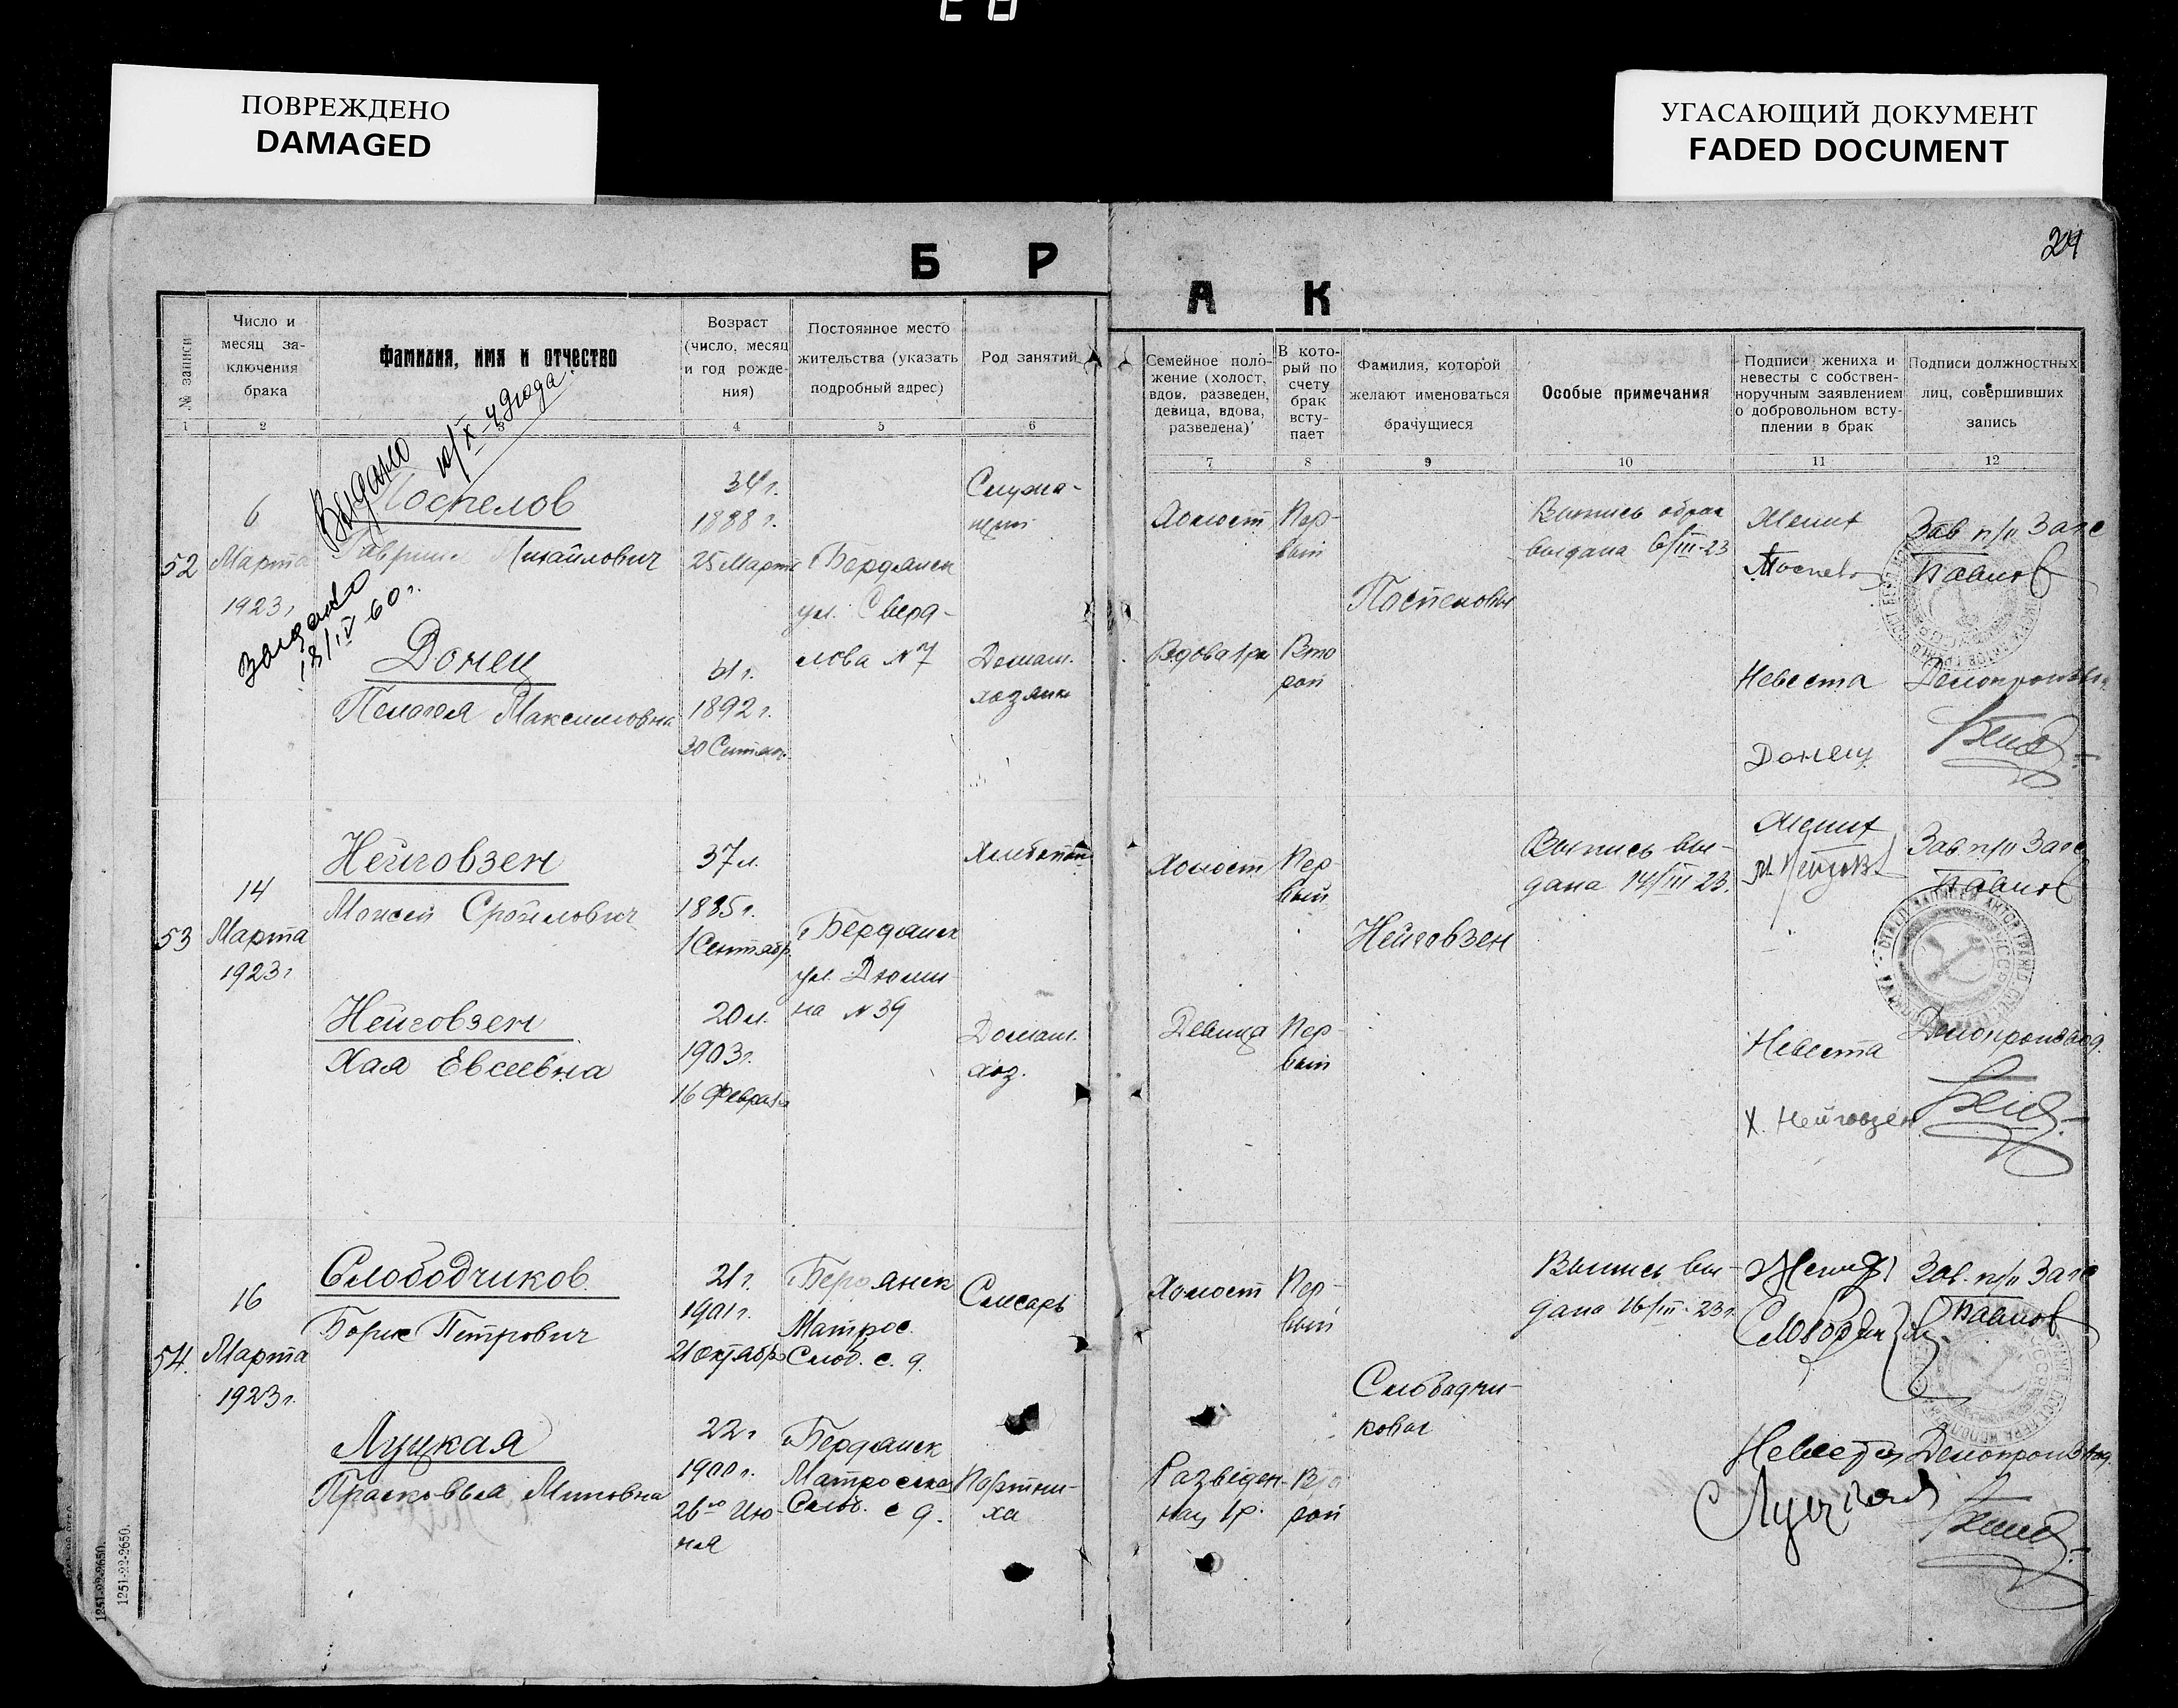 ПОВРЕЖДЕНО
DAMAGED
УГАСАЮЩИЙ ДОКУМЕНТ
FADED DOCUMENT
24
Б Р А К
№ записи
Число и
месяц за-
ключения
брака
Фамилия, имя и отчество
Возраст
(число, месяц
и год рожде-
ния)
Постоянное место
жительства (указать
подробный адрес)
Род занятий
Семейное поло-
жение (холост,
вдов, разведен,
девица, вдова,
разведена)
В кото-
рый по
счету
брак
всту-
пает
Фамилия, которой
желают именоваться
брачущиеся
Особые примечания
Подписи жениха и
невесты с собствен-
норучным заявлением
о добровольном всту-
плении в брак
Подписи должностных
лиц, совершивших
запись
1 2 3 4 5 6 7 8 9 10 11 12
Выдано
18/IV 60 г.
52
6
Марта
1923 г
Поспелов
Михайлович
34 г.
1888 г.
25 Марта
г Бердянск
ул. Сверд-
лова № 7
Служа-
щий
Холост
Пер-
вый
Поспеловы
Выпись
выдана 6/III-23
Жених
Зав п/о Загс
Павлов
Донец
Пелагея Максимовна
31 г.
1892 г.
30 Сентяб.
Домаш.
хозяйк
Вдова 1 бр
Вто
рой
Невеста
Донец
Делопроизвод
53
14
Марта
1923 г
Нейговзен
Моисей Сройлович
37 л.
1885 г.
1 Сентябр
г Бердянск
ул. Дюми
на № 39
Хлебопаш
Холост
Пер
вый
Нейговзен
Выпись вы-
дана 14/III 23.
Жених
Зав п/о Загс
Павлов
Нейговзен
Хая Евсеевна
20 л.
1903 г.
16 Февраля
Домаш.
хоз.
Девица
Пер-
вый
Невеста
Х. Нейговзен
Делопроизвод.
54.
16
Марта
1923 г.
Слободчиков
Борис Петрович
21 г.
1901 г.
21 Октябр
г Бердянск
Матрос.
Слоб. с. д.
Слесарь
Холост
Пер-
вый
Слободчи-
ковы
Выпись вы-
дана 16/III-23 г.
Жених
Зав. п/о Загс
Павлов
Луцкая
Прасковья Миновна
22 г
1900 г.
26го Ию-
ня
г Бердянск
Матросская
Слоб. с д.
Портни-
ха
Разведен-
ная 1 р.
Вто
рой
Невеста
Луцкая
Делопроизвод.
1251-22-2650.
1251-22-2650.